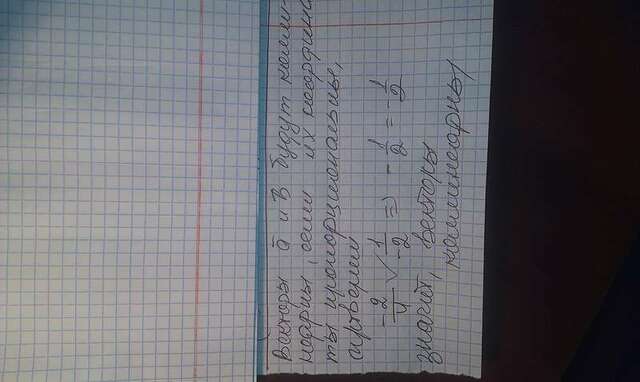 Векторы ā и В будут колли-
неарны, если их координа-
ты пропорциональны,
-2/4 √ 1/-2 => -1/2 = -1/2
значит, векторы
коллинеарны